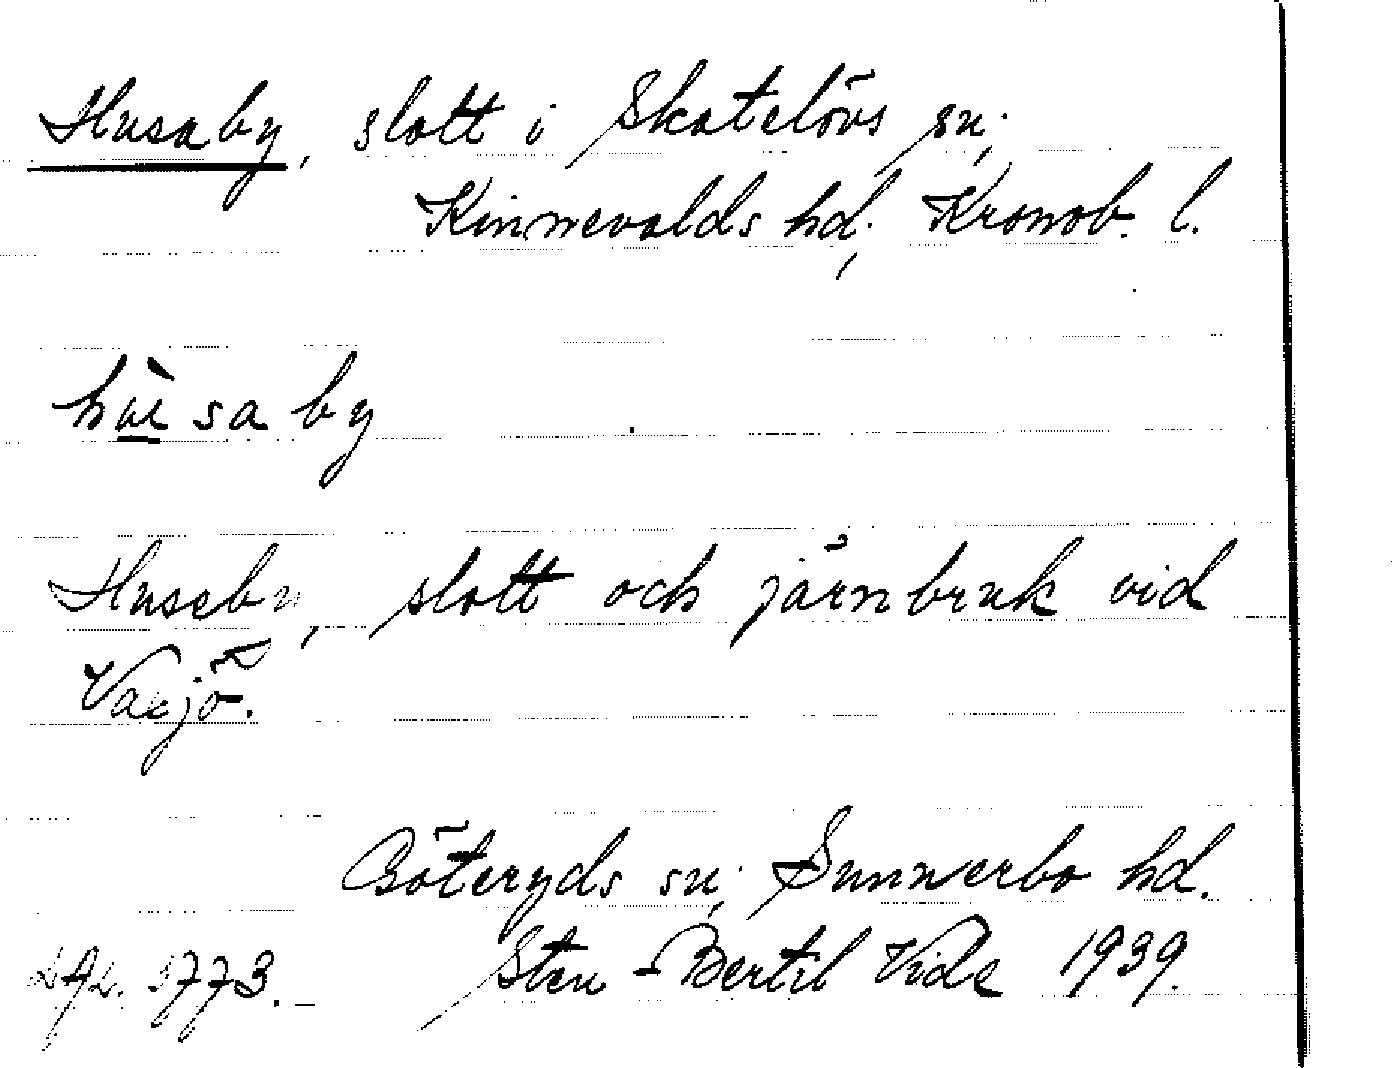 Husaby, slott i Skatelövs sn.,
Kinnevalds hd., Kronob. l.
hùsaby
Huseby, slott och järnbruk vid
Växjö.
Göteryds sn., Sunnerbo hd.
3773. Sten-Bertil Vide 1939.